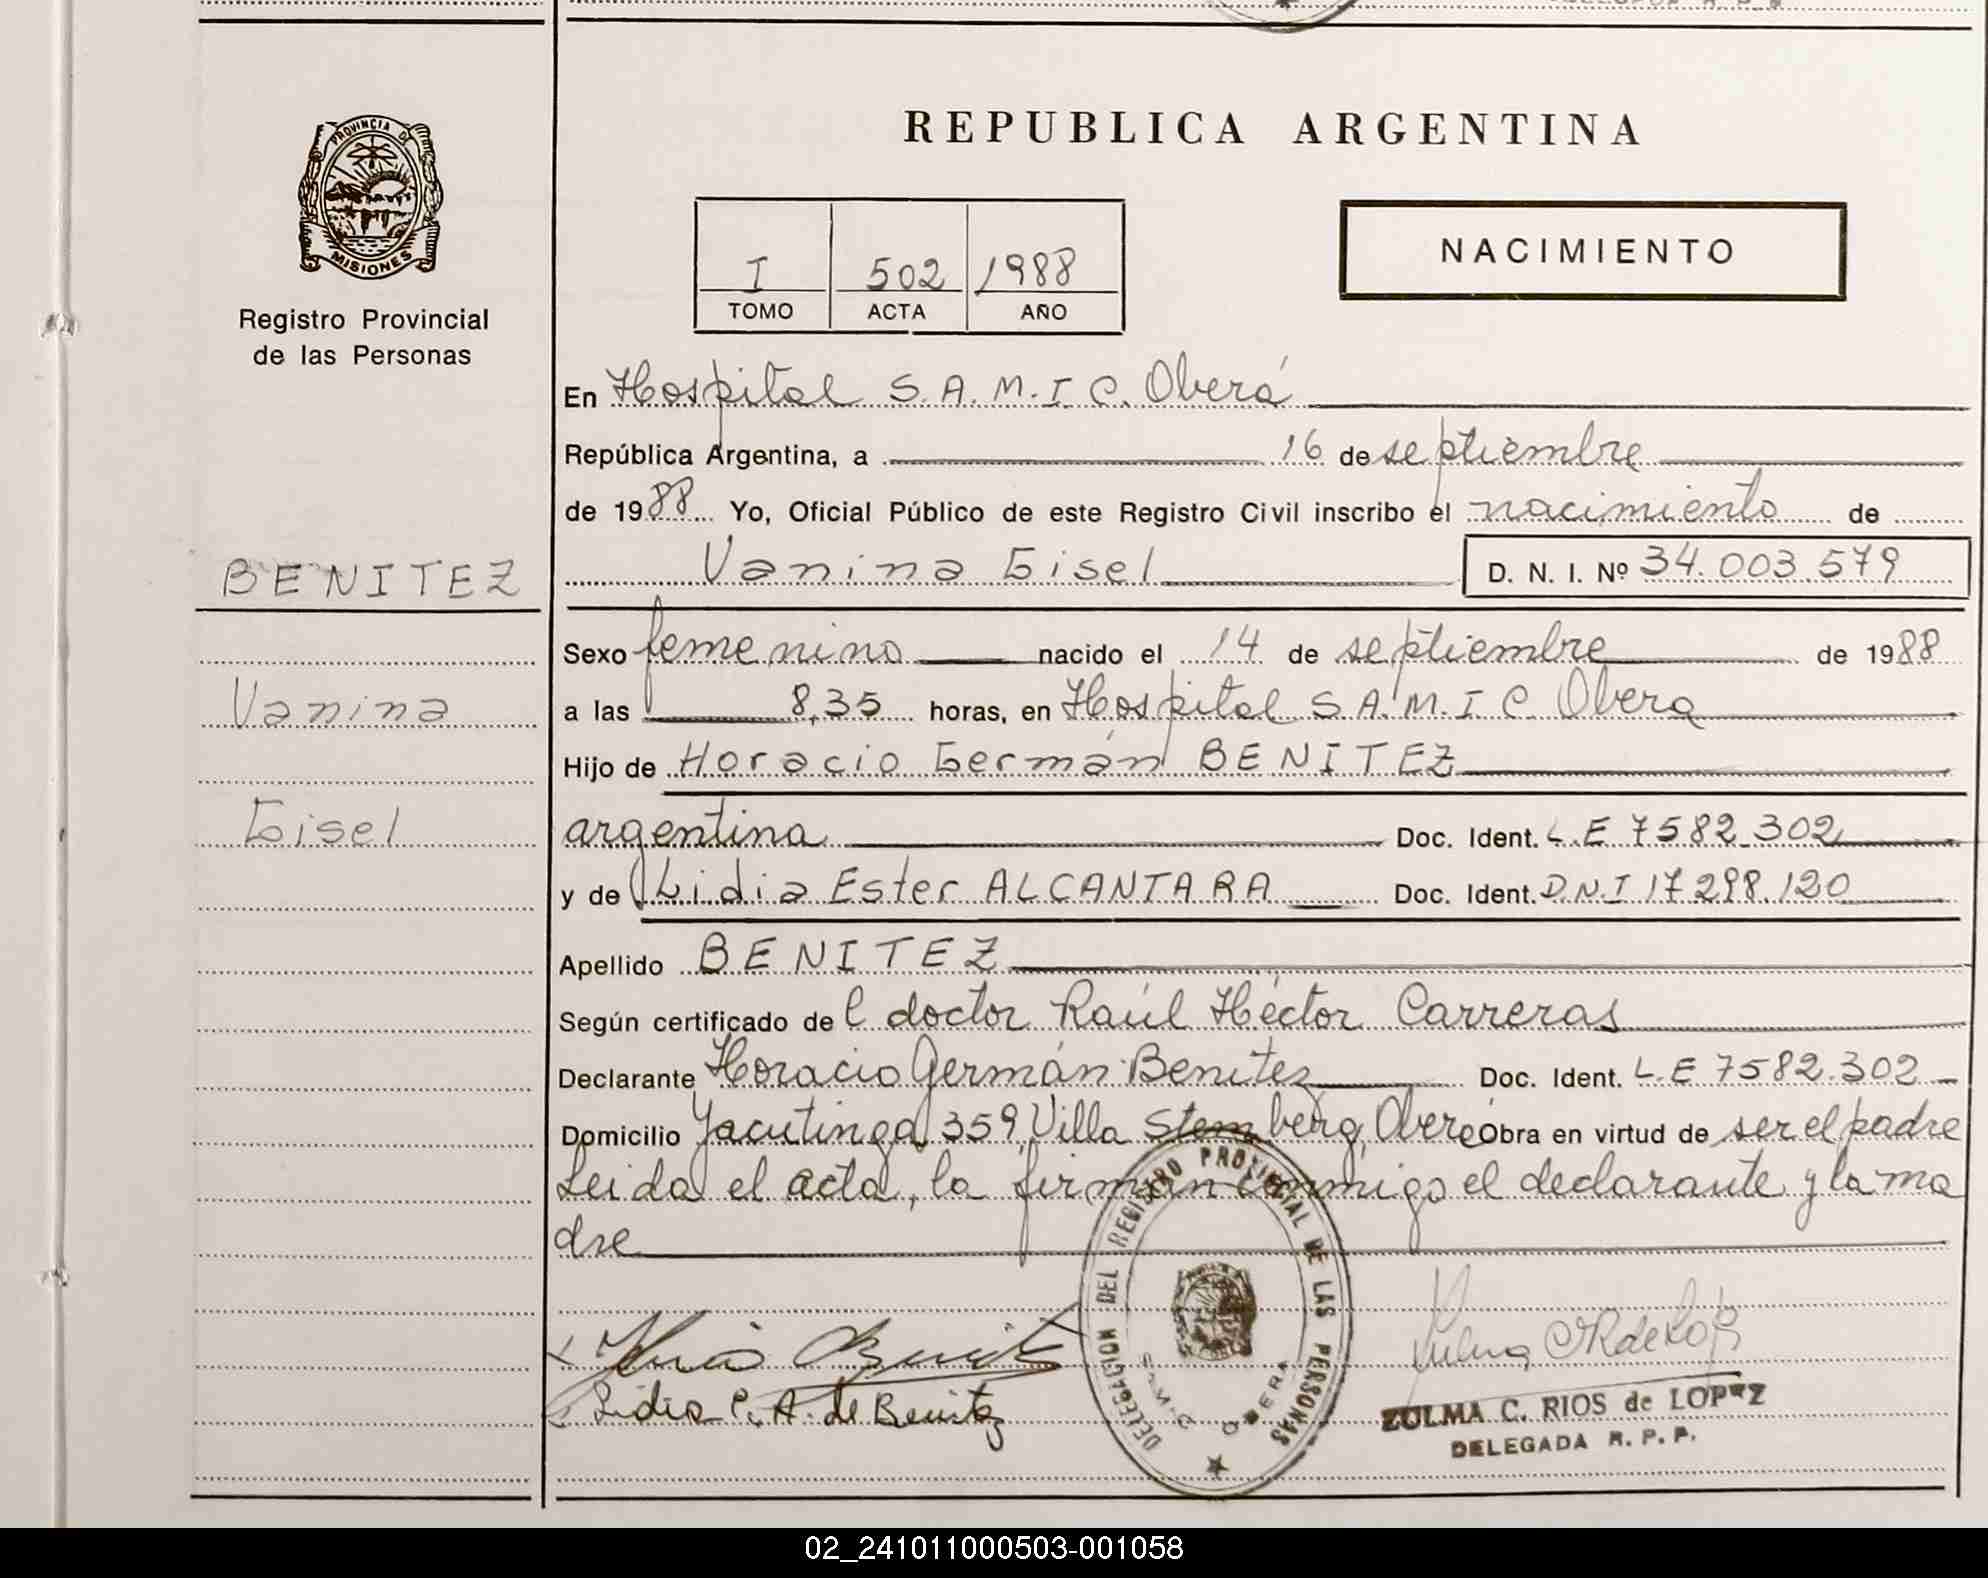 REPUBLICA ARGENTINA
PROVINCIA D
MISIONES
Registro Provincial
de las Personas
I 502 1988
TOMO ACTA AÑO
NACIMIENTO
En Hospital S.A.M.I.C. Oberá
República Argentina, a 16 de septiembre
de 1988 Yo, Oficial Público de este Registro Civil inscribo el nacimiento de
BENITEZ
Vanina Gisel D. N. I. Nº 34.003.579
Sexo femenino nacido el 14 de septiembre de 1988
Vanina
a las 8,35 horas, en Hospital S.A.M.I.C. Obera
Hijo de Horacio Germán BENITEZ
Gisel
argentina Doc. Ident. L.E 7582.302
y de Lidia Ester ALCANTARA Doc. Ident. D.N.I 17.298.120
Apellido BENITEZ
Según certificado de l doctor Raúl Héctor Carreras
Declarante Horacio Germán Benitez Doc. Ident. L.E 7582.302
Domicilio Yacutinga 359, Villa Stemberg, Oberá Obra en virtud de ser el padre
Leida el acta, la firman conmigo el declarante y la ma
dre
DELEGACION DEL REGISTRO PROVINCIAL DE LAS PERSONAS
S.A.M.I.C. OBERA
Lidia E. A. de Benitez
ZULMA C. RIOS de LOPEZ
DELEGADA R. P. P.
02_241011000503-001058